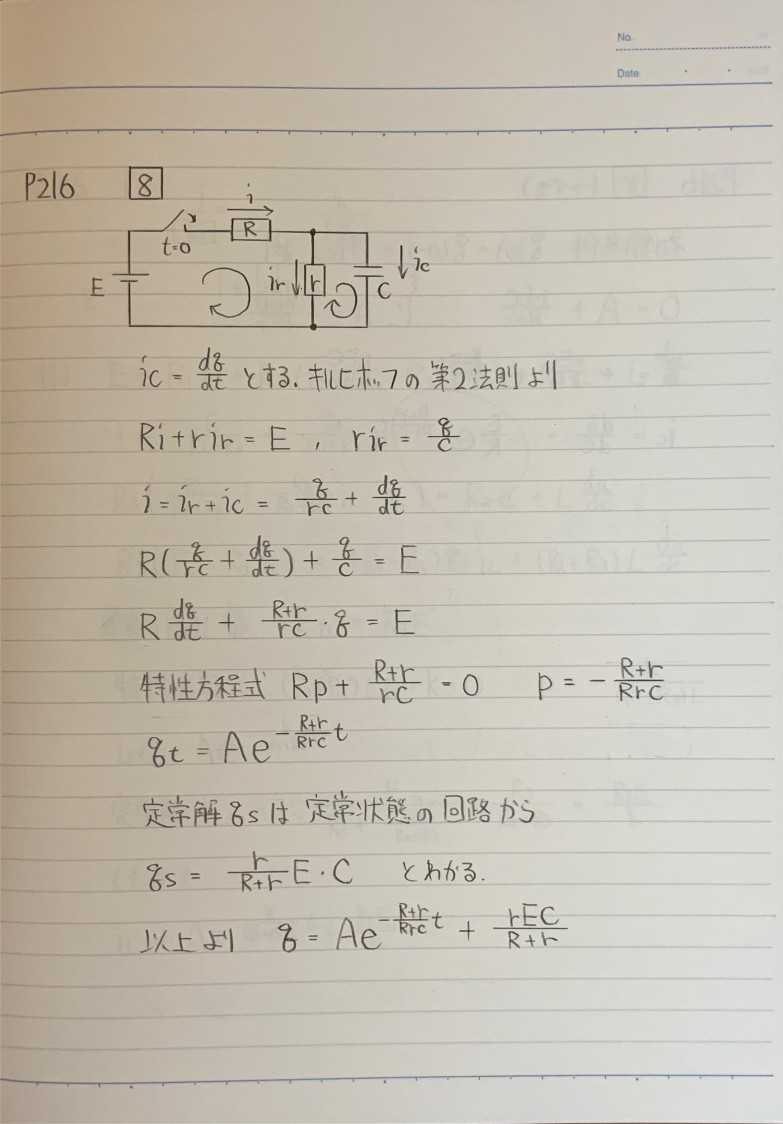 No.
Date
P216 8
i
R
t=0
E
ir
r
C
ic
ic = dq/dt とする. キルヒホッフの第2法則より
Ri + rir = E , rir = q/C
i = ir + ic = q/rC + dq/dt
R(q/rC + dq/dt) + q/C = E
R dq/dt + R+r/rC · q = E
特性方程式 Rp + R+r/rC = 0 p = - R+r/RrC
qt = Ae^-R+r/RrC t
定常解 qs は 定常状態の回路から
qs = r/R+r E · C とわかる.
以上より q = Ae^-R+r/RrC t + rEC/R+r